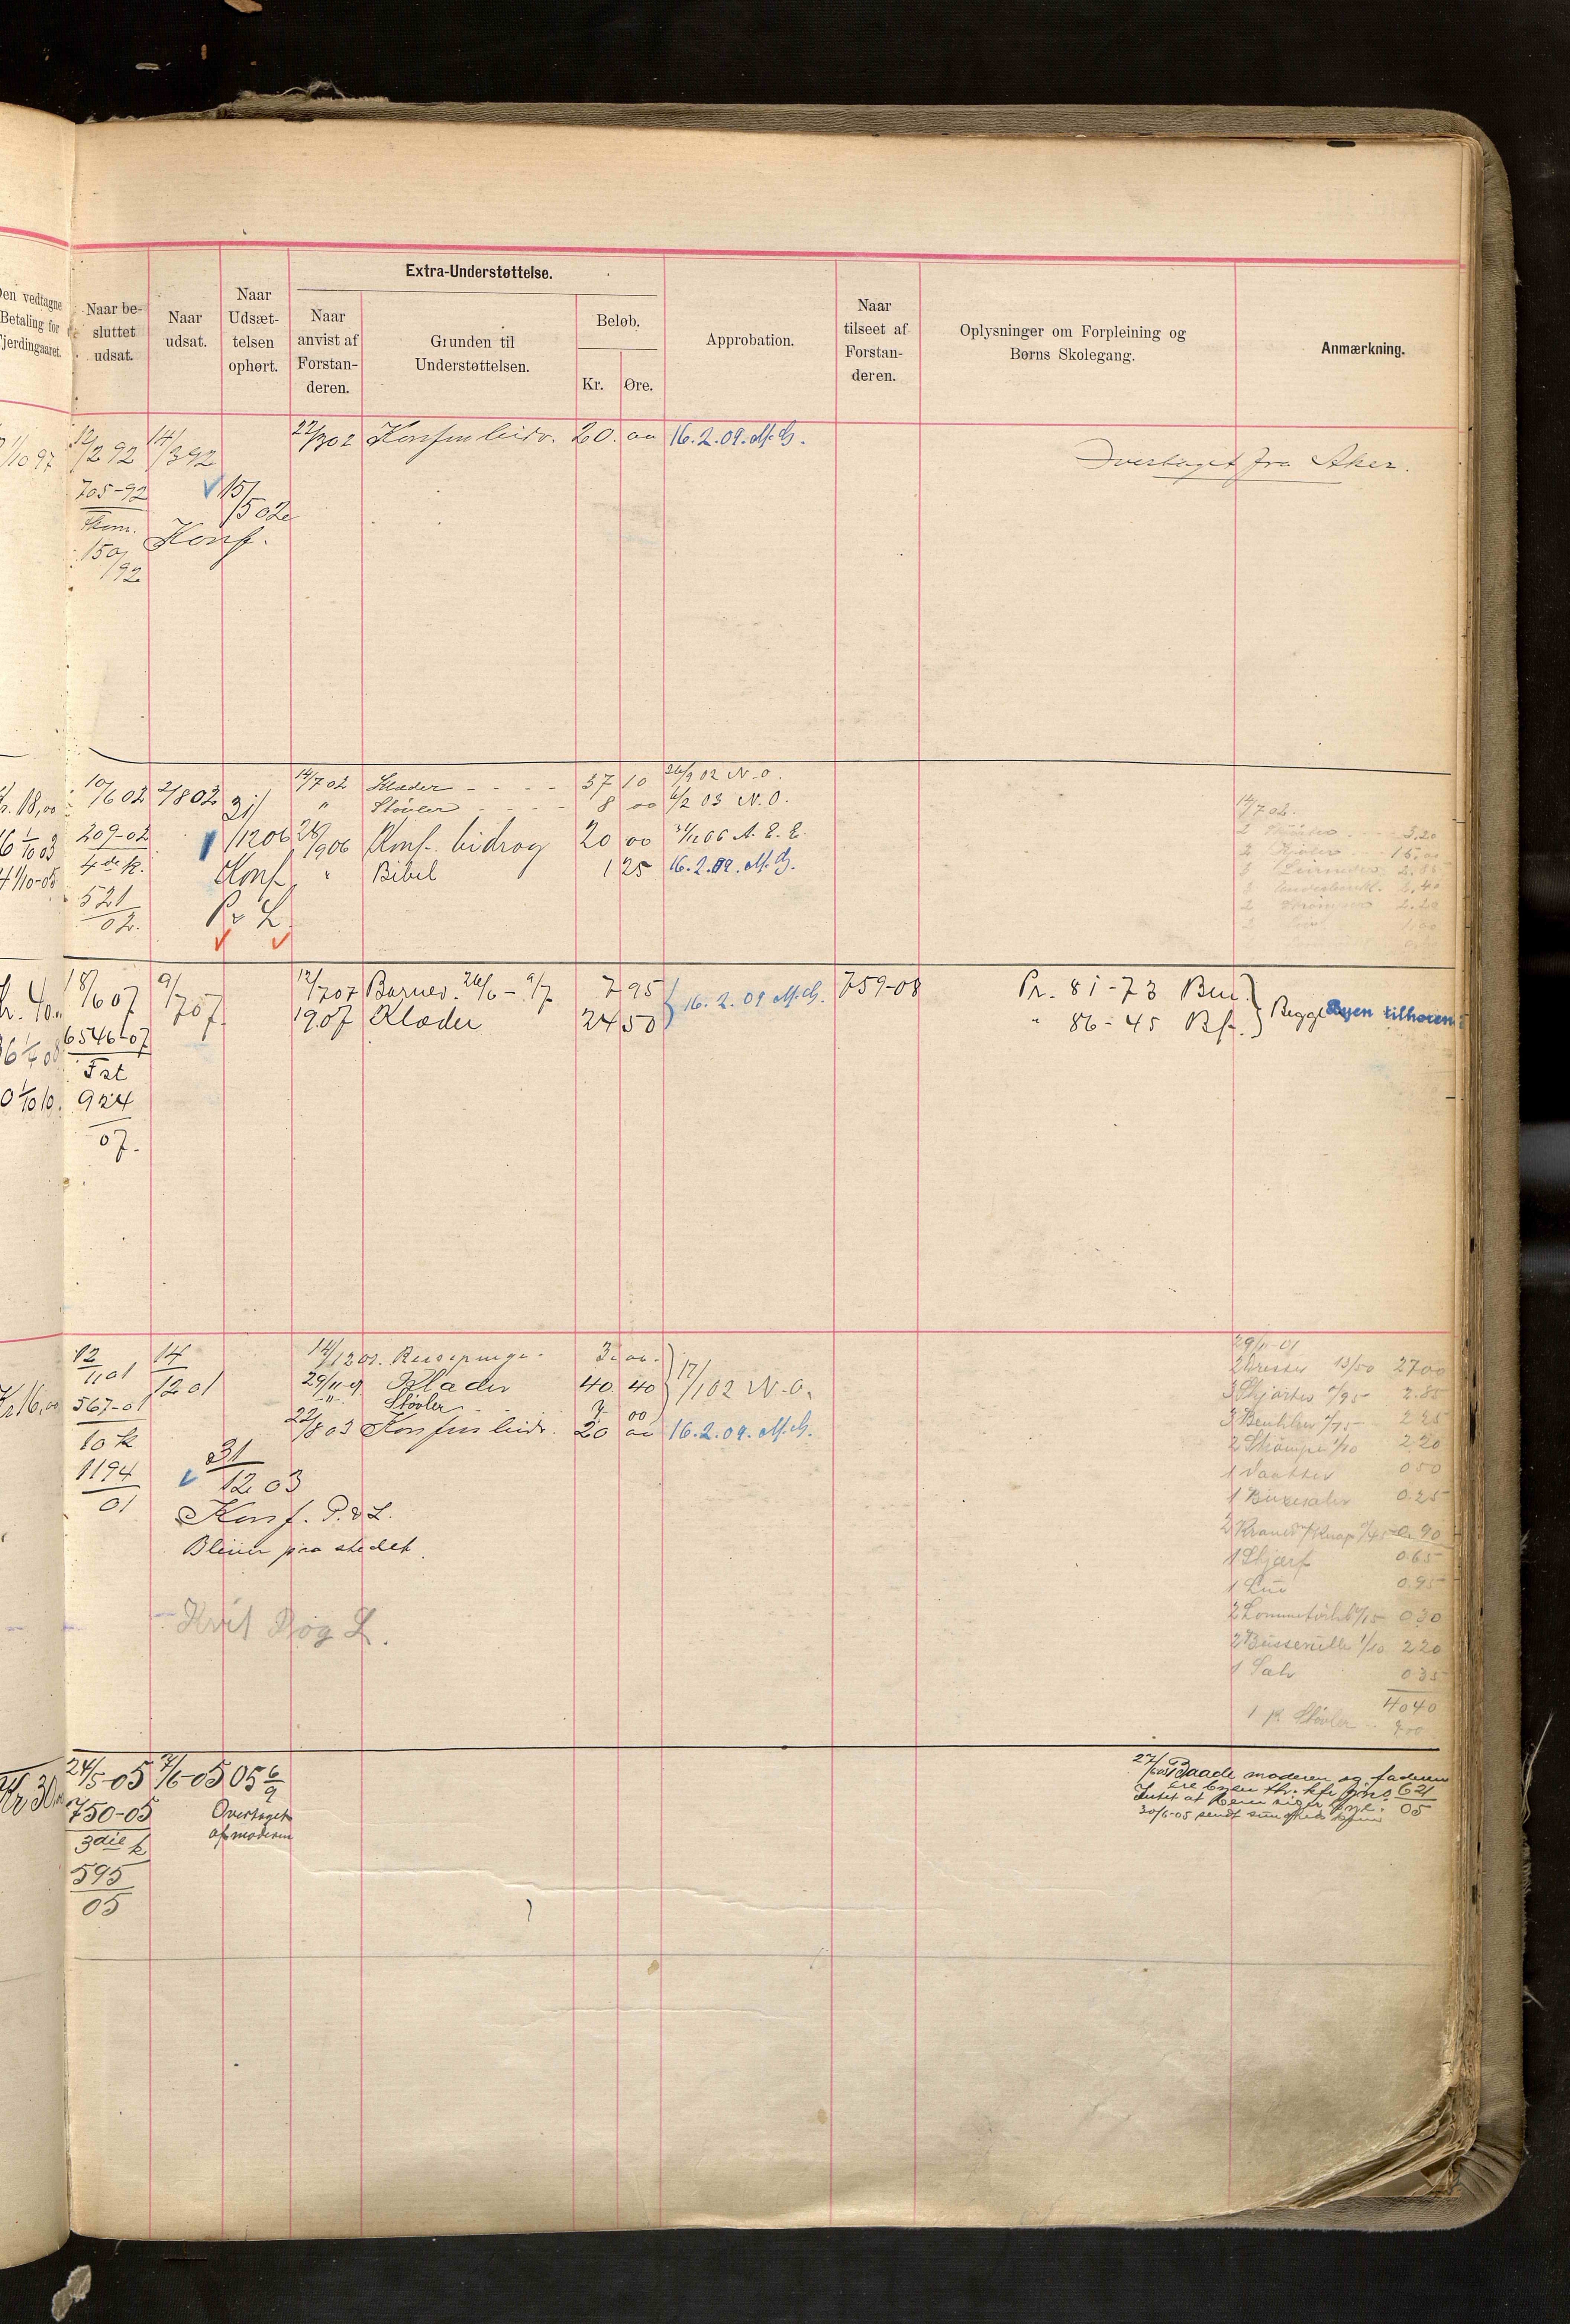 Den vedtagne
Betaling for
Fjerdingaaret.
Naar be-
sluttet
udsat.
Naar
udsat.
Naar
Udsæt-
telsen
ophørt.
Extra-Understøttelse.
Naar
anvist af
Forstan-
deren.
Grunden til
Understøttelsen.
Beløb.
Kr. Øre.
Approbation.
Naar
tilseet af
Forstan-
deren.
Oplysninger om Forpleining og
Børns Skolegang.
Anmærkning.
12/2 92 14/3 92 22/7 02 Konfm bidr. 20. 00 16.2.09. M.G.
Overtaget fra Aker.
705-92
15/5 02
Konf.
150/92
10/6 02 2/8 02 14/7 02 Klæder 37 10 26/9 02 N.O.
" Støvler 8 00 6/2 03 N.O.
kr. 18,00
209-02 31/12 06 28/9 06 Konf. bidrag 20 00 31/12 06 A. E. E.
4de k. Konf. " Bibel 1 25 16.2.09. M.G.
521
02.
P. & L.
14/7 02.
2 3.20
2 15.00
2 Strømper 2.20
18/6 07 9/7 07 12/7 07 Barnev. 26/6 - 9/7 7 95 16.2.09 M.G. 759-08 Pr. 81-73 Bm.
1907 Klæder 24 50 " 86-45 Bf. Begge Byen tilhørende
6546-07
Fat
924
07.
12/11 01 14/12 01 14/12 01. Reisepenge 3. 00
29/11-01 Klæder 40 40 17/1 02 N.O.
-"- Støvler 7 00
22/8 03 Konfm bidr. 20 00 16.2.09. M.G.
Kr 16,00
567-01
10 k
1194
01
31
12 03
Konf. P. & L.
Bliver paa stedet.
Kvit Bog L.
29/11-01
2 Dresser 13/50 27 00
3 Skjorter /95 2.85
3 Benklær /75 2 25
2 Strømper 1/10 2 20
1 Vaatter 0 50
1 Buxesaler 0.25
2 Kraver m/ Knap /45 0.90
1 Skjærf 0.65
1 Lue 0.95
2 Lommetørkl. /15 0 30
2 Busseruller 1/10 2 20
1 0 35
40 40
1 p. Støvler 7 00
24/5-05 7/6-05 05 6/9
Kr 30
750-05 Overtaget
3die k af moderen
595
05
27/6 05 Baade moderen og faderen
621
05
30/6-05 sendt